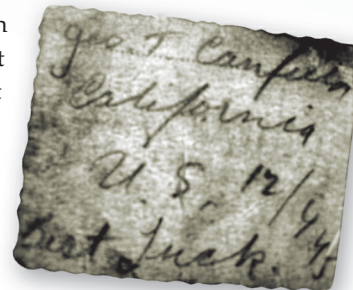 Geo. T Canfield
California
U. S. 12/9/45
Best Luck.